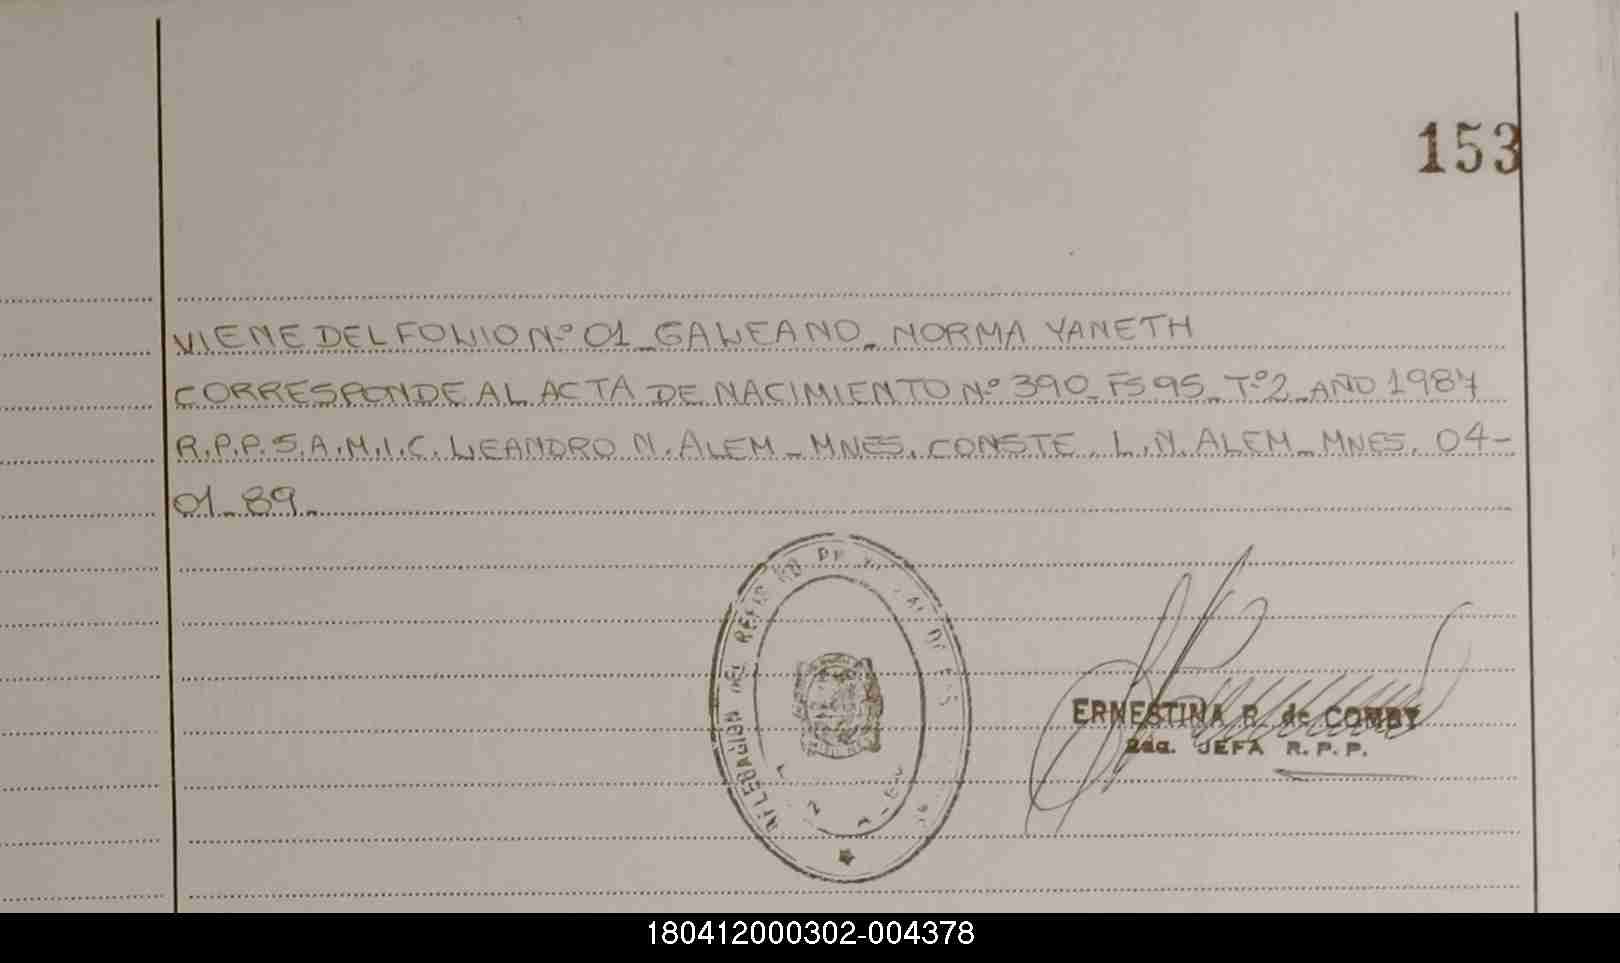 153
VIENE DEL FOLIO Nº 01_GALEANO_ NORMA YANETH
CORRESPONDE AL ACTA DE NACIMIENTO Nº 390_FS 95_ Tº2_AÑO 1987
R.P.P.S.A.M.I.C. LEANDRO N. ALEM _ MNES. CONSTE. L.N. ALEM_ MNES. 04-
01_89_
DELEGACION DEL REGISTRO
ERNESTINA R. de COMBY
2da. JEFA R.P.P.
180412000302-004378